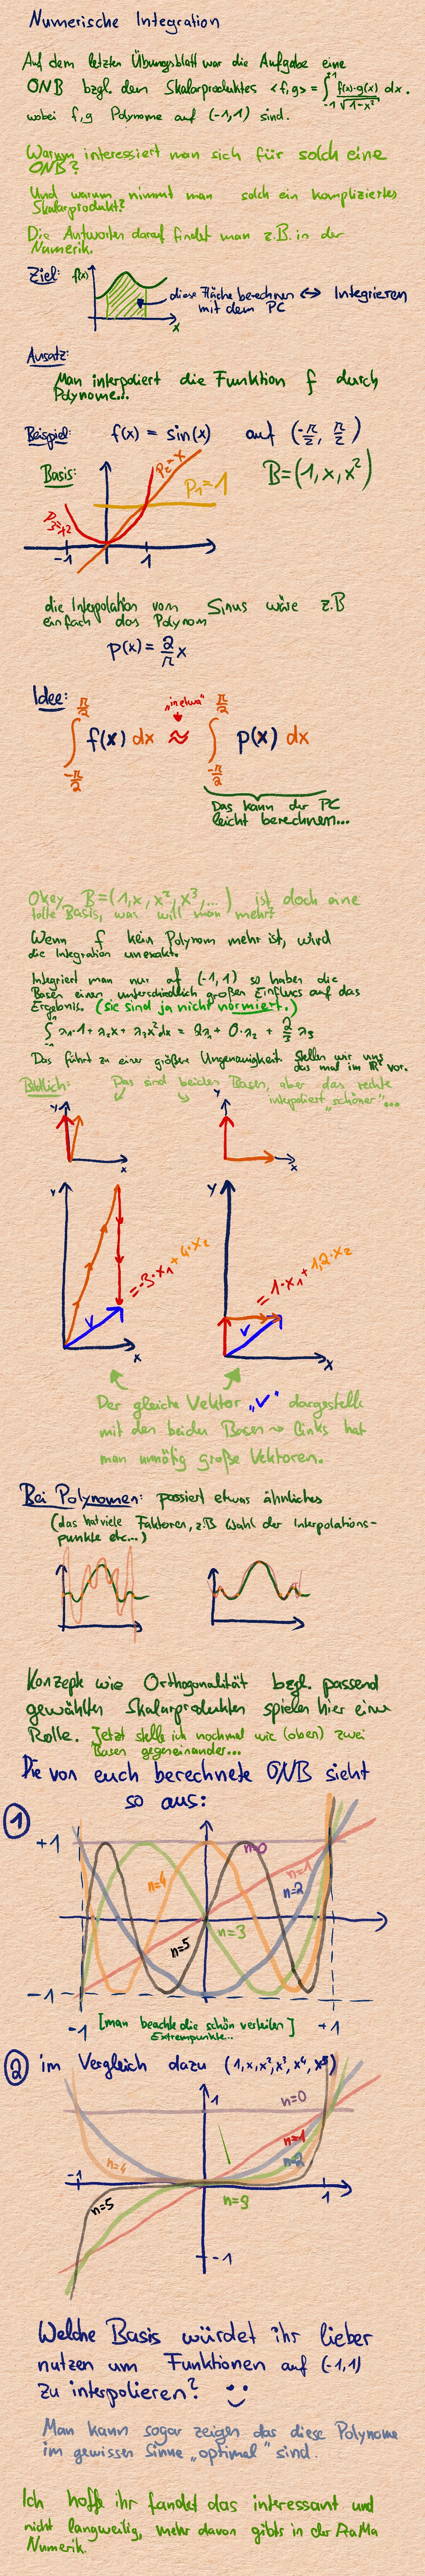 Numerische Integration
Auf dem letzten Übungsblatt war die Aufgabe eine
ONB bzgl. den Skalarproduktes <f,g> = ∫_{-1}^{+1} f(x)·g(x)/√(1-x²) dx.
wobei f,g Polynome auf (-1,1) sind.
Warum interessiert man sich für solch eine
ONB?
Und warum nimmt man solch ein kompliziertes
Skalarprodukt?
Die Antworten darauf findet man z.B. in der
Numerik.
Ziel: f(x)
diese Fläche berechnen ↔ Integrieren
mit dem PC
x
Ansatz:
Man interpoliert die Funktion f durch
Polynome...
Beispiel: f(x) = sin(x) auf (-π/2, π/2)
Basis: P₂=x P₁=1 B=(1,x,x²)
P₃=x²
-1 1
die Interpolation vom Sinus wäre z.B
einfach das Polynom
p(x) = 2/π x
Idee: "in etwa"
∫_{-π/2}^{π/2} f(x) dx ≈ ∫_{-π/2}^{π/2} p(x) dx
Das kann der PC
leicht berechnen...
Okey B=(1,x,x²,x³,...) ist doch eine
tolle Basis, was will man mehr?
Wenn f kein Polynom mehr ist, wird
die Integration unexakt.
Integriert man nur auf (-1,1) so haben die
Basen einen unterschiedlich großen Einfluss auf das
Ergebnis. (sie sind ja nicht normiert.)
∫ λ₁·1 + λ₂x + λ₃x² dx = 2λ₁ + 0·λ₂ + 2/3 λ₃
Das führt zu einer größere Ungenauigkeit. Stellen wir uns
das mal im ℝ² vor.
Bildlich: Das sind beides Basen, aber das rechte
interpoliert „schöner"...
y y
x x
y y
= -3·x₁ + 4·x₂ = 1·x₁ + 1,2·x₂
v v
x x
Der gleiche Vektor „v" dargestellt
mit den beiden Basen → Links hat
man unnötig große Vektoren.
Bei Polynomen: passiert etwas ähnliches
(das hat viele Faktoren, z.B Wahl der Interpolations-
punkte etc...)
Konzepte wie Orthogonalität bzgl. passend
gewählten Skalarprodukten spielen hier eine
Rolle. Jetzt stelle ich nochmal wie (oben) zwei
Basen gegeneinander...
Die von euch berechnete ONB sieht
so aus:
1
+1 n=0
n=1
n=4 n=2
n=3
n=5
-1
-1 [man beachte die schön verteilten] +1
Extrempunkte...
2 im Vergleich dazu (1,x,x²,x³,x⁴,x⁵)
1 n=0
n=1
n=4 n=2
-1 1
n=5 n=3
-1
Welche Basis würdet ihr lieber
nutzen um Funktionen auf (-1,1)
zu interpolieren?
Man kann sogar zeigen das diese Polynome
im gewissen Sinne „optimal" sind.
Ich hoffe ihr fandet das interessant und
nicht langweilig, mehr davon gibts in der AaMa
Numerik.